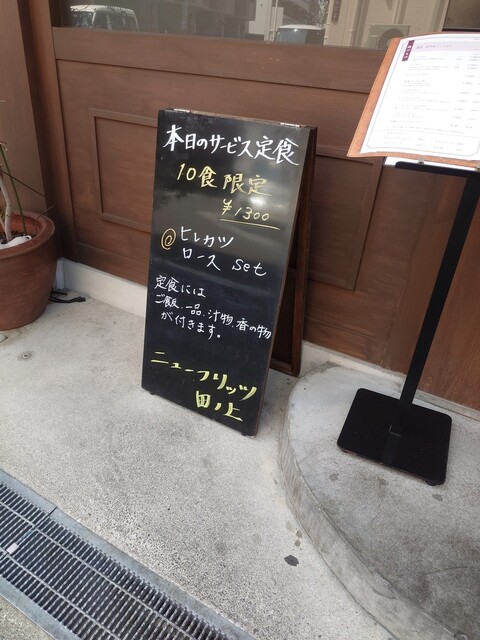 本日のサービス定食
10食限定
¥1300
@ヒレカツ
ロース set
定食には
ご飯、一品、汁物、香の物
が付きます。
ニューフリッツ
田ノ上